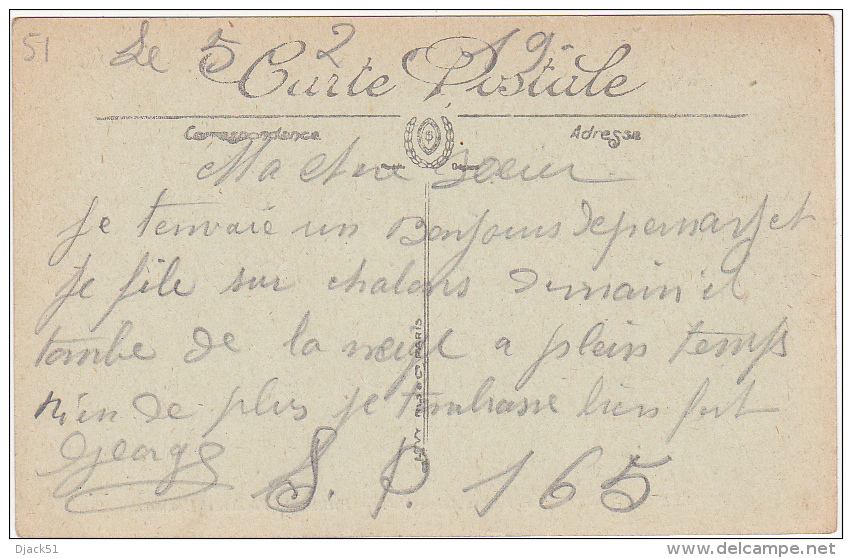 51
Le 5 2 19
Carte Postale
Correspondance
Adresse
Ma chre Soeur
je t'envoie un Bonjours depernay et
je file sur chalons demain il
tombe de la neige a plein temps
rien de plus je t'embrasse bien fort
George
S. P. 165
LEVY FILS & Cie PARIS
Djack51
delcampe.net